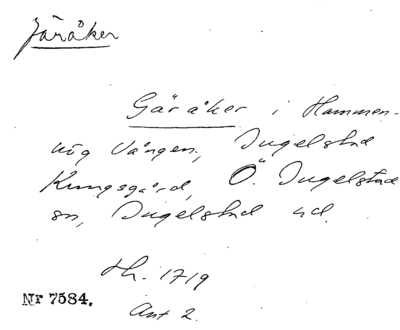 Järåker
Gäråker i Hammen-
hög Vången, Ingelstad
Kungsgård, Ö. Ingelstad
sn, Ingelstad hd.
Lh. 1719
Ant 2.
Nr 7584.